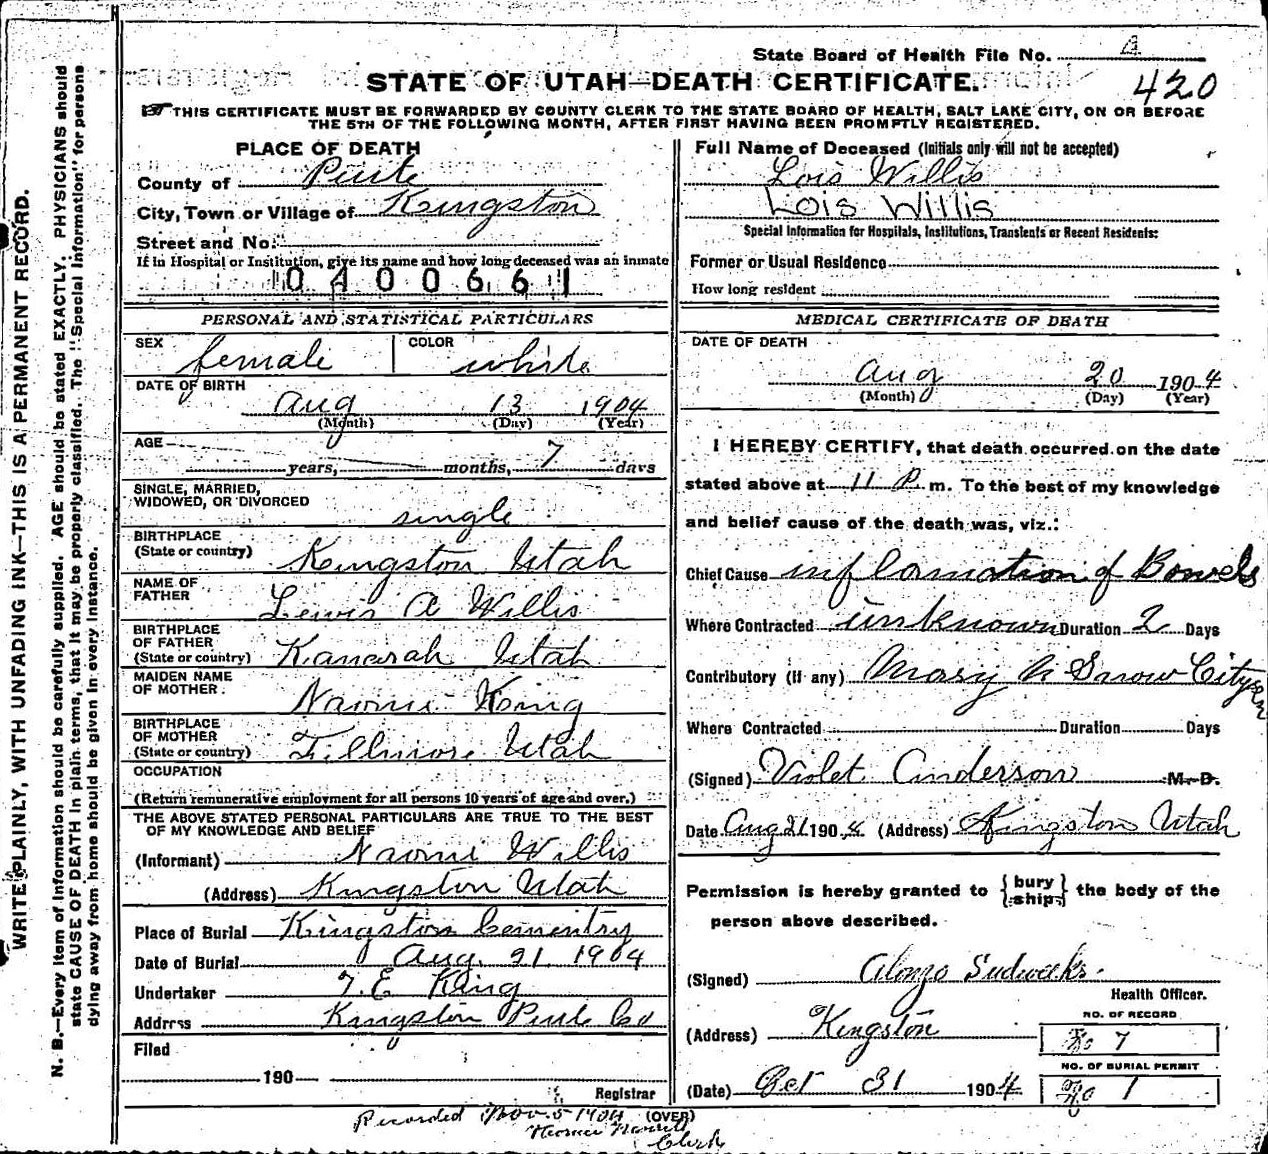 State Board of Health File No.
420
STATE OF UTAH—DEATH CERTIFICATE.
THIS CERTIFICATE MUST BE FORWARDED BY COUNTY CLERK TO THE STATE BOARD OF HEALTH, SALT LAKE CITY, ON OR BEFORE
THE 5TH OF THE FOLLOWING MONTH, AFTER FIRST HAVING BEEN PROMPTLY REGISTERED.
WRITE PLAINLY, WITH UNFADING INK—THIS IS A PERMANENT RECORD.
N. B.—Every item of information should be carefully supplied. AGE should be stated EXACTLY. PHYSICIANS should
state CAUSE OF DEATH in plain terms, that it may be properly classified. The "Special Information" for persons
dying away from home should be given in every instance.
PLACE OF DEATH
County of Piute
City, Town or Village of Kingston
Street and No.
If in Hospital or Institution, give its name and how long deceased was an inmate
0400661
PERSONAL AND STATISTICAL PARTICULARS
SEX female COLOR white
DATE OF BIRTH
Aug 13 1904
(Month) (Day) (Year)
AGE
years, months, 7 days
SINGLE, MARRIED,
WIDOWED, OR DIVORCED single
BIRTHPLACE
(State or country) Kingston Utah
NAME OF
FATHER Lewis A Willis
BIRTHPLACE
OF FATHER
(State or country) Kanarah Utah
MAIDEN NAME
OF MOTHER Naomi King
BIRTHPLACE
OF MOTHER
(State or country) Fillmore Utah
OCCUPATION
(Return remunerative employment for all persons 10 years of age and over.)
THE ABOVE STATED PERSONAL PARTICULARS ARE TRUE TO THE BEST
OF MY KNOWLEDGE AND BELIEF
(Informant) Naomi Willis
(Address) Kingston Utah
Place of Burial Kingston Cementry
Date of Burial Aug. 21 1904
Undertaker T. E King
Address Kingston Piute Co
Filed
190
Registrar
Full Name of Deceased (Initials only will not be accepted)
Lois Willis
Lois Willis
Special Information for Hospitals, Institutions, Transients or Recent Residents:
Former or Usual Residence
How long resident
MEDICAL CERTIFICATE OF DEATH
DATE OF DEATH
Aug 20 1904
(Month) (Day) (Year)
I HEREBY CERTIFY, that death occurred on the date
stated above at 11 P. m. To the best of my knowledge
and belief cause of the death was, viz.:
Chief Cause inflamation of Bowels
Where Contracted unknown Duration 2 Days
Contributory (if any) Mary N Snow
Where Contracted Duration Days
(Signed) Violet Anderson M. D.
Date Aug 21 1904 (Address) Kingston Utah
Permission is hereby granted to {bury ship} the body of the
person above described.
(Signed) Alonzo Sudweeks.
Health Officer.
(Address) Kingston
NO. OF RECORD
No 7
NO. OF BURIAL PERMIT
(Date) Oct 31 1904 No 1
(OVER)
Recorded Nov. 5 1904
Clerk